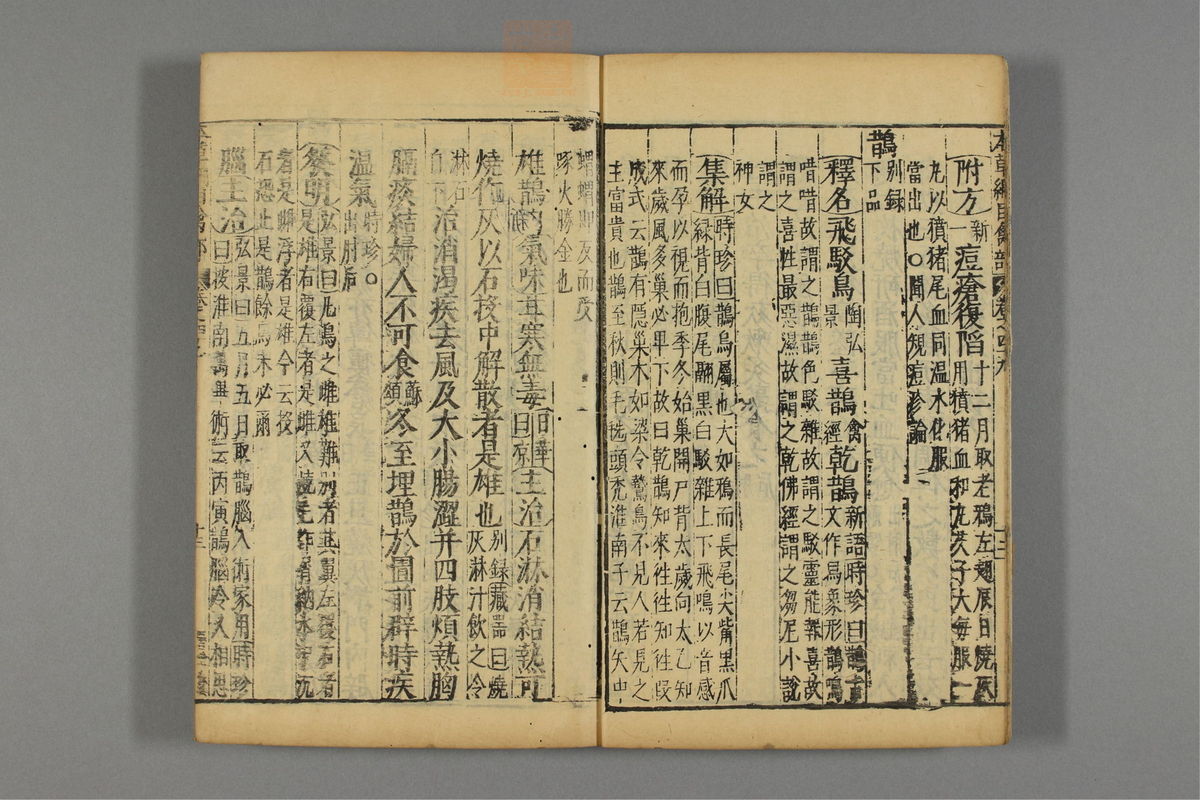 本草綱目禽部 卷之四十九
附方 新一 痘瘡復陷 十二月取老鴉左翅辰日燒灰用豶猪血和丸芡子大每服一
丸以豶猪尾血同温水化服
當出也○聞人規痘疹論
鵲 别録下品
釋名 飛駁鳥 陶弘景 喜鵲 禽經 乾鵲 新語時珍曰鵲古文作舄象形鵲鳴
唶唶故謂之鵲鵲色駁雜故謂之駁靈能報喜故
謂之喜性最惡濕故謂之乾佛經謂之芻尼小說
謂之
神女
集解 時珍曰鵲烏屬也大如鴉而長尾尖觜黑爪
緑背白腹尾翮黑白駁雜上下飛鳴以音感
而孕以視而抱季冬始巢開戸背太歲向太乙知
來歲風多巢必卑下故曰乾鵲知來徃徃知徃叚
成式云鵲有隠巢木如梁令鷙鳥不見人若見之
主富貴也鵲至秋則毛毨頭禿淮南子云鵲矢中
蝟蝟即反而受
啄火勝金也
雄鵲肉 氣味甘寒無毒 日華曰凉 主治石淋消結熱可
燒作灰以石投中解散者是雄也 别録藏器曰燒灰淋汁飲之令
淋石自下 治消渴疾去風及大小腸澀并四肢煩熱胸
膈痰結婦人不可食 蘇頌 冬至埋鵲於圊前辟時疾
温氣 時珍○出肘后
發明 弘景曰凡鳥之雌雄難别者其翼左覆右者
是雄右覆左者是雌又燒毛作屑納水中沉
者是雌浮者是雄今云投
石恐止是鵲餘鳥未必爾
腦主治 弘景曰五月五日取鵲腦入術家用時珍
曰按淮南萬畢術云丙寅鵲腦令人相思
十三